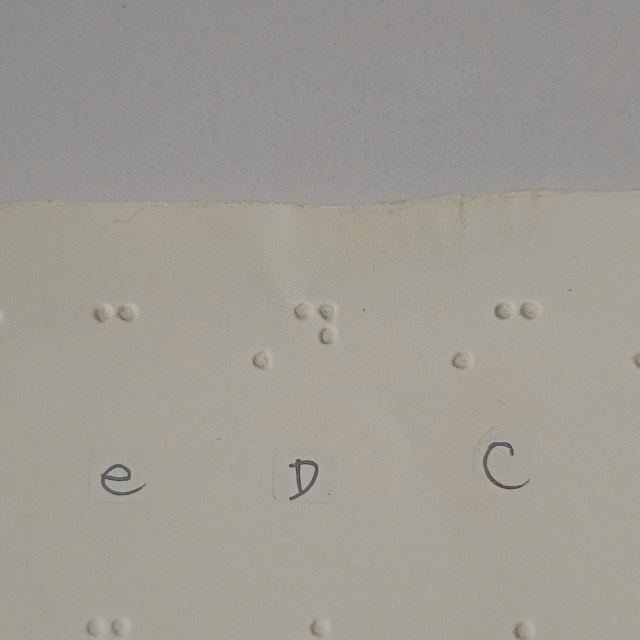 e D C